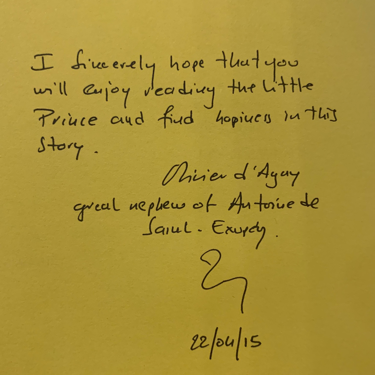 I Sincerely hope that you
will enjoy reading the Little
Prince and find hopiness in this
Story.
Olivier d'Agay
great nephew of Antoine de
Saint-Exupéry.
22/04/15